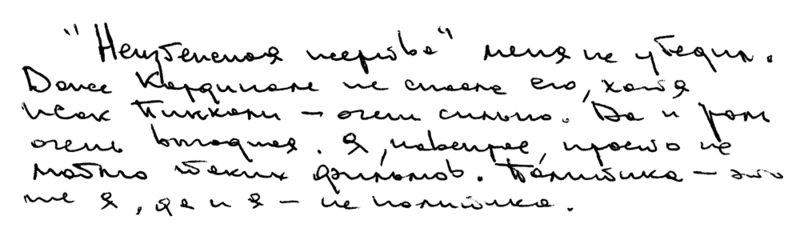 "Неизбежная жертва" меня не убедил.
Даже Кардинале не спасла его, хотя
и как Пиккали – очень сильно. Да и роль
очень выгодная. Я, наверное, просто не
люблю таких фильмов. Политика – это
не я, да и я – не политика.